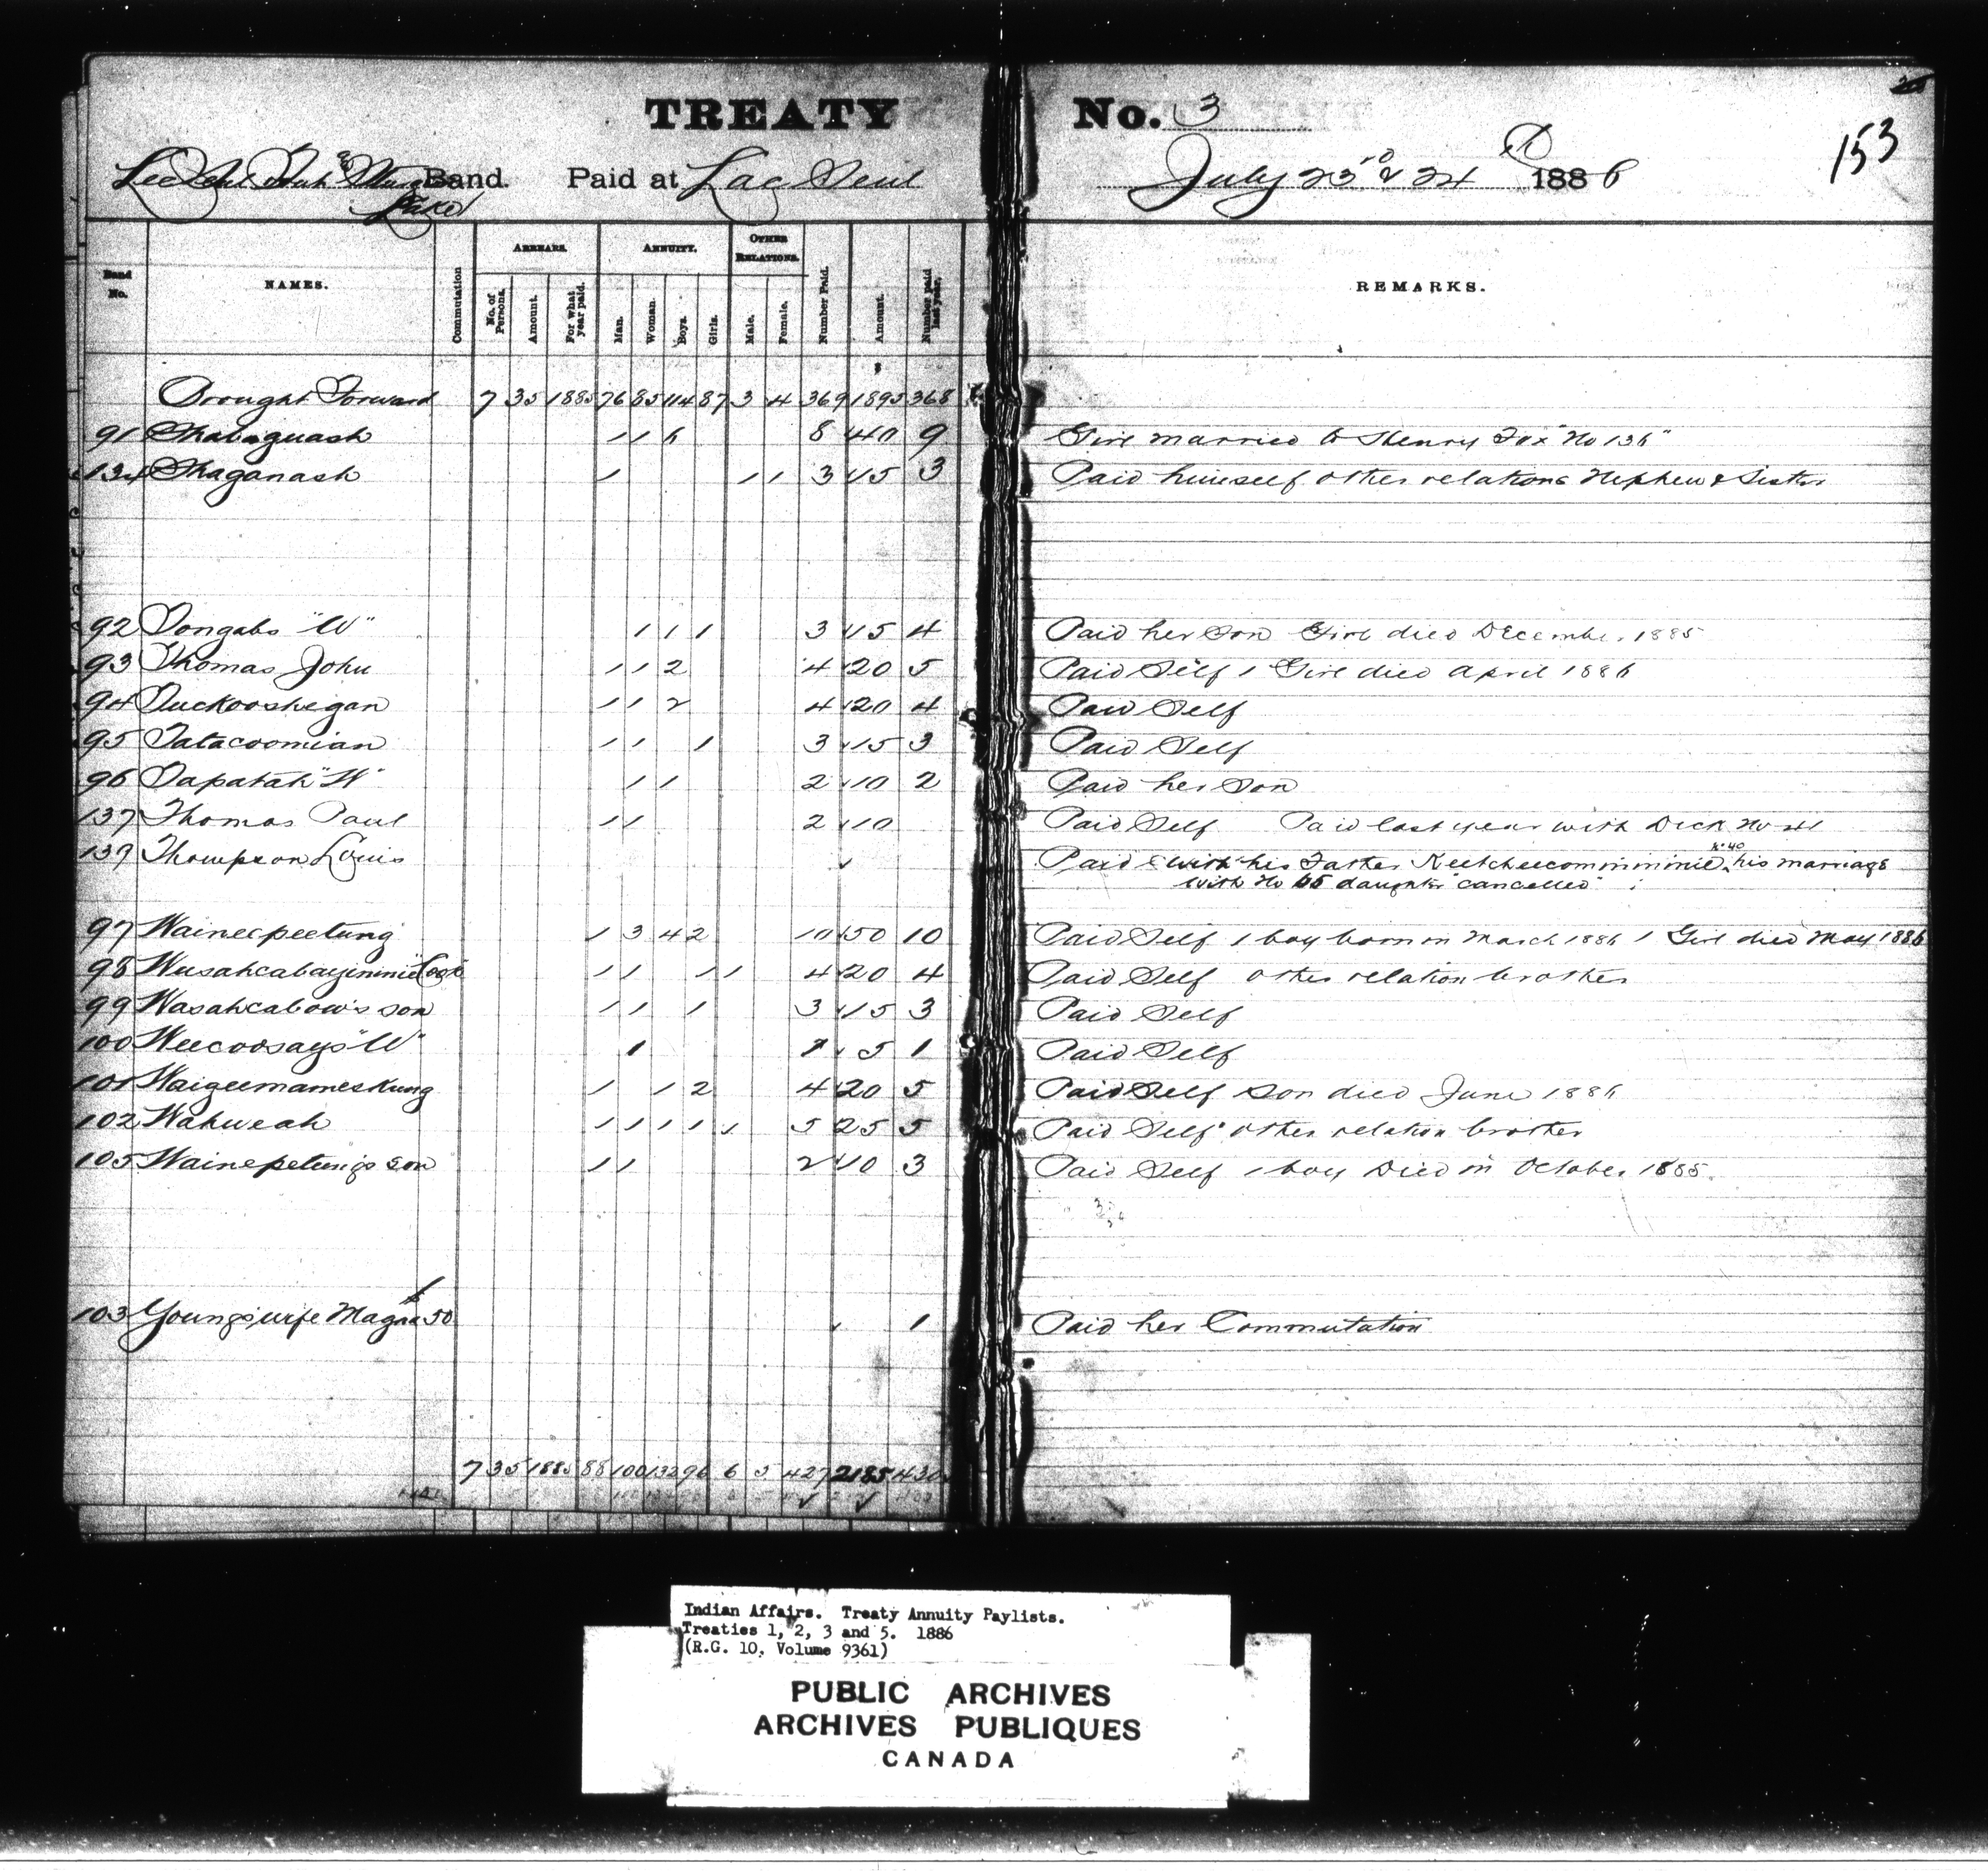 TREATY No. 3
153
Band. Paid at Lac Seul July 23 & 24 1886
Lake
Band No. NAMES. Commutation ARREARS. No. of Persons. Amount. For what year paid. ANNUITY. Man. Woman. Boys. Girls. OTHER RELATIONS. Male. Female. Number Paid. Amount. Number paid last year. REMARKS.
Brought Forward 7 35 1885 76 85 114 87 3 4 369 1895 368
91 Shabaguash 1 1 6 8 40 9 Girl married to Henry Fox "No 136"
134 Shaganash 1 1 1 3 15 3 Paid himself other relations Nephew & Sister
92 Tongabs "W" 1 1 1 3 15 4 Paid her son Girl died December 1885
93 Thomas John 1 1 2 4 20 5 Paid Self 1 Girl died April 1886
94 Tuckooshegan 1 1 2 4 20 4 Paid Self
95 Tatacoomian 1 1 1 3 15 3 Paid Self
96 Tapatah "W" 1 1 2 10 2 Paid her son
137 Thomas Paul 1 1 2 10 Paid Self Paid last year with Dick No 21
139 Thompson Louis Paid with his Father Keetcheecommiminie No 40 his marriage
with No 65 daughter "cancelled"
97 Wainecpeetung 1 3 4 2 10 50 10 Paid Self 1 boy born in March 1886 1 Girl died May 1886
98 Wusahcabayininnie 1 1 1 1 4 20 4 Paid Self other relation brother
99 Wasahcabow's son 1 1 1 3 15 3 Paid Self
100 Weecoosays "W" 1 1 5 1 Paid Self
101 Waigeemameskung 1 1 2 4 20 5 Paid Self son died June 1886
102 Wahweah 1 1 1 1 1 5 25 5 Paid Self other relation brother
105 Wainepetung's son 1 1 2 10 3 Paid Self 1 boy Died in October 1885.
103 Young's wife 50 1 Paid her Commutation
7 35 1885 88 100 132 96 6 5 427 2185 430
Indian Affairs. Treaty Annuity Paylists.
Treaties 1, 2, 3 and 5. 1886
(R.G. 10, Volume 9361)
PUBLIC ARCHIVES
ARCHIVES PUBLIQUES
CANADA